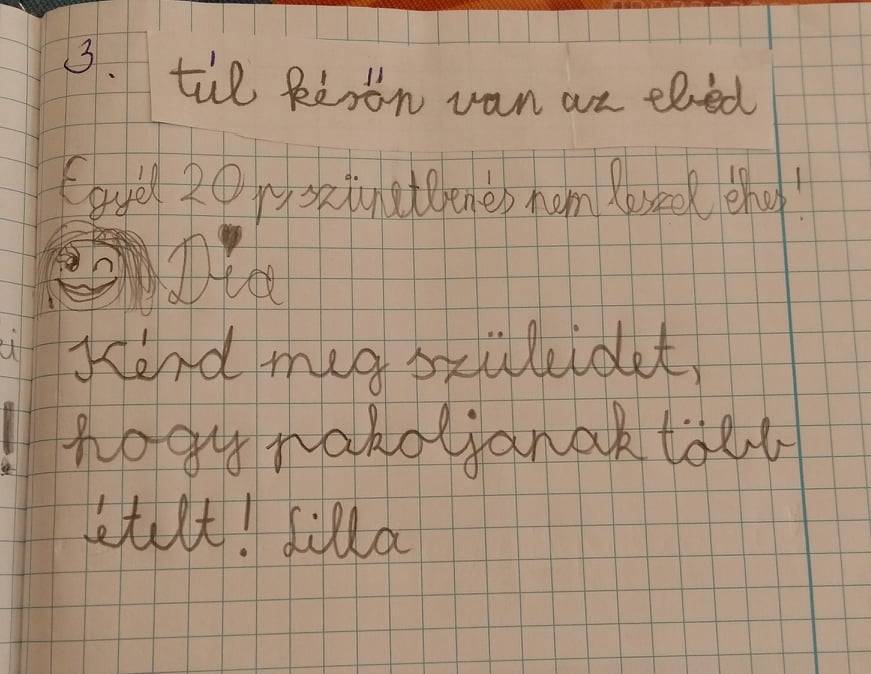 3. túl későn van az ebéd
Egyél 20 p, szünetben és nem leszel éhes!
Dia
Kérd meg szüleidet,
hogy pakoljanak több
ételt! Lilla